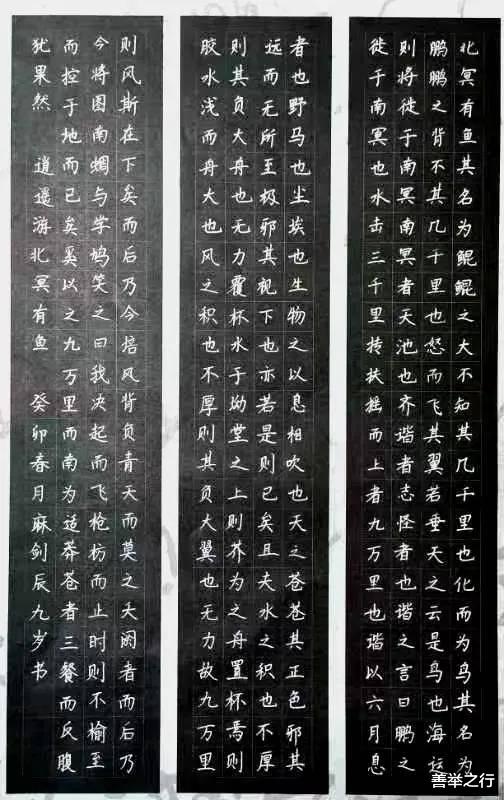 北冥有鱼其名为鲲鲲之大不知其几千里也化而为鸟其名为
鹏鹏之背不其几千里也怒而飞其翼若垂天之云是鸟也海运
则将徙于南冥南冥者天池也齐谐者志怪者也谐之言曰鹏之
徙于南冥也水击三千里抟扶摇而上者九万里也以六月息
者也野马也尘埃也生物之以息相吹也天之苍苍其正色邪其
远而无所至极邪其视下也亦若是则已矣且夫水之积也不厚
则其负大舟也无力覆杯水于坳堂之上则芥为之舟置杯焉则
胶水浅而舟大也风之积也不厚则其负大翼也无力故九万里
则风斯在下矣而后乃今培风背负青天而莫之夭阏者而后乃
今将图南蜩与学鸠笑之曰我决起而飞枪枋而止时则不榆至
而控于地而已矣奚以之九万里而南为适莽苍者三餐而反腹
犹果然 逍遥游北冥有鱼 癸卯春月麻剑辰九岁书
善举之行